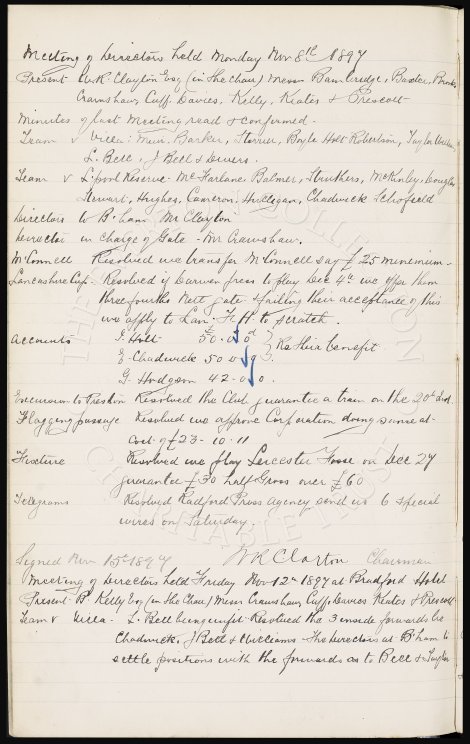 Meeting of Directors held Monday Nov 8th 1897
Present W.R. Clayton Esq (in the Chair) Messrs Bainbridge, Baxter,
Crawshaw, Cuff, Davies, Kelly, Keates & Prescott
Minutes of last Meeting read & confirmed.
Team v Villa: Muir, Barker, Storrier, Boyle Holt Robertson, Taylor
L. Bell, J Bell & Divers.
Team v L'pool Reserve - McFarlane, Balmer, Struthers, McKinley, Douglas
Stewart, Hughes, Cameron, Hulligan, Chadwick Schofield
Directors to B'ham Mr Clayton
Director in charge of Gate - Mr Crawshaw.
McConnell Resolved we transfer McConnell say £25 minimum -
Lancashire Cup. Resolved if Darwen press to play Dec 4th we offer them
three fourths nett gate & failing their acceptance of this
we apply to Lan: F.A. to scratch.
Accounts J. Holt £50.0.0d
E. Chadwick 50.0.0 Re their benefit
G. Hodgson 42.0.0.
Excursion to Preston Resolved the Club guarantee a train on the 20th Inst.
Flagging passage Resolved we approve Corporation doing same at
cost of £23-10-11
Fixture Resolved we play Leicester Fosse on Dec 27
guarantee £30 half Gross over £60
Telegrams Resolved Radford Press Agency send us 6 special
wires on Saturday.
Signed Nov 15th 1897 W R Clayton Chairman
Meeting of Directors held Friday Nov 12th 1897 at Bradford Hotel
Present B. Kelly Esq (in the Chair) Messrs Crawshaw, Cuff, Davies Keates & Prescott
Team v Villa - L. Bell being unfit. Resolved the 3 inside forwards be
Chadwick, J Bell & Williams - The Directors at B'ham to
settle positions with the forwards as to Bell & Taylor